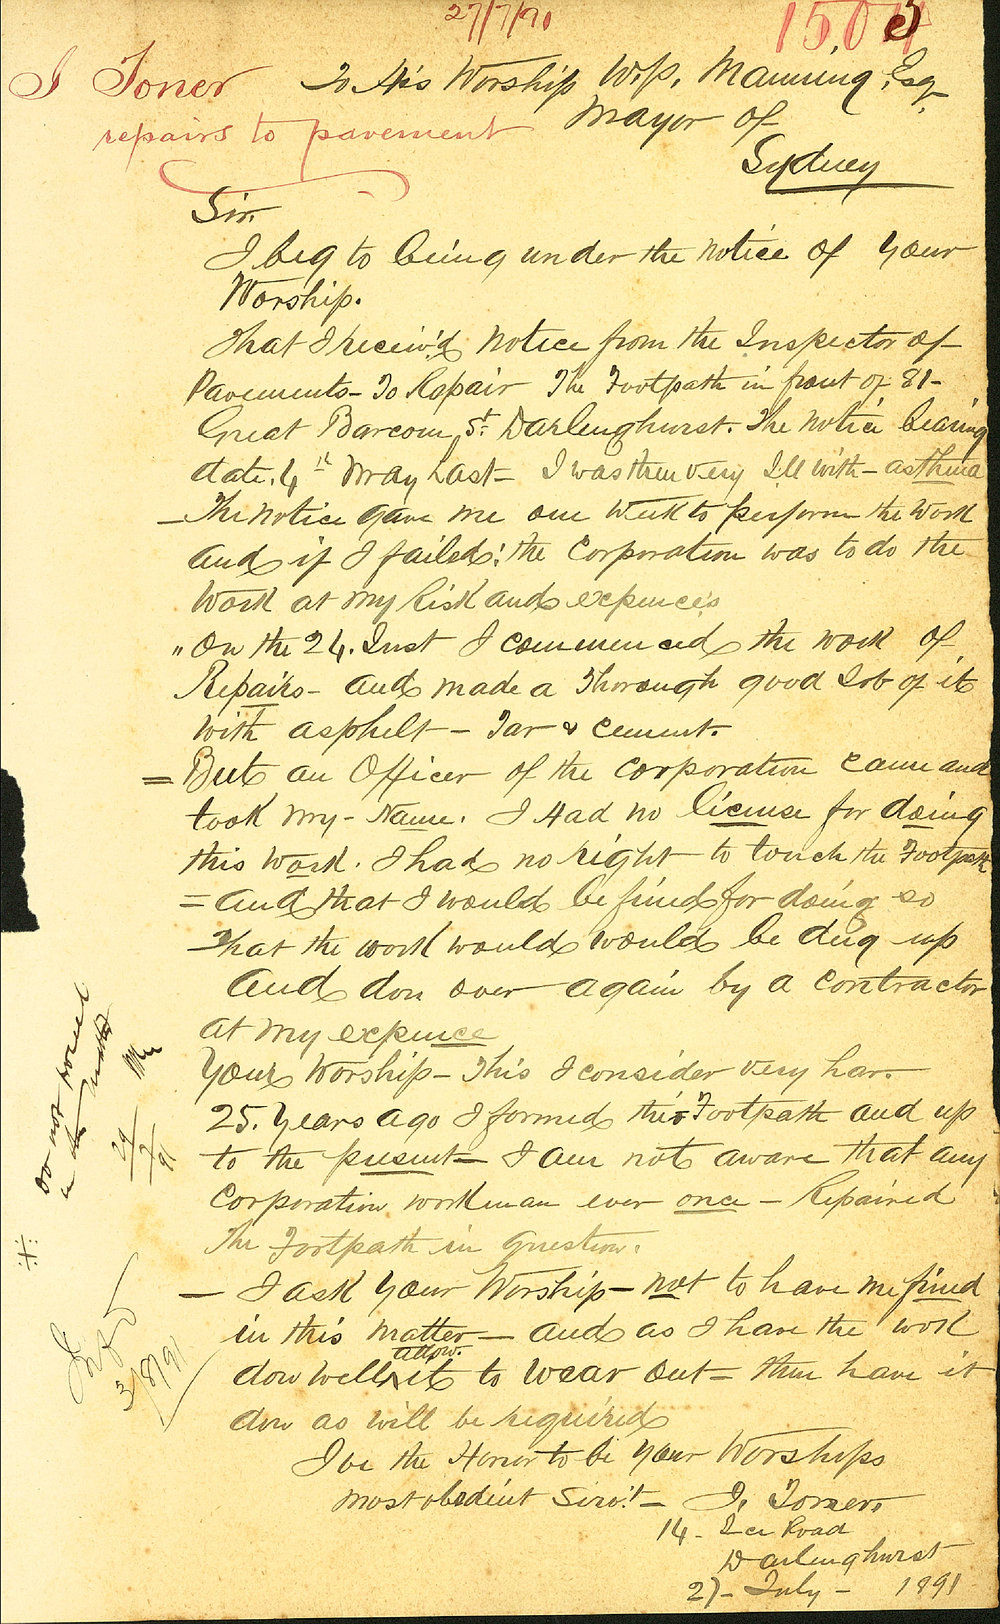 27/7/91
1504
J Toner
repairs to pavement
To His Worship W.P. Manning, Esq.
Mayor of
Sydney
Sir.
I beg to bring under the notice of your
Worship.
That I receiv'd notice from the Inspector of
Pavements - To Repair The Footpath in front of 81 -
Great Barcom St. Darlinghurst. The notice bearing
date. 4th May Last - I was then very Ill with - asthma
- The notice gave me one week to perform the work
and if I failed: the Corporation was to do the
work at my Risk and expences
" On the 24. Inst I commenced the work of
Repairs - and made a Thorough good Job of it
with asphelt - Tar & Cement.
= But an Officer of the Corporation came and
took my - Name. I Had no license for doing
this work. I had no right to touch the Footpath
= and that I would be fined for doing so
That the work would would be dug up
And don over again by a contractor
at my expence
Your Worship - This I consider very har.
25. Years ago I formed this Footpath and up
to the present - I am not aware that any
Corporation workman ever once - Repaired
The Footpath in question.
- I ask Your Worship - not to have me fined
in this matter - and as I have the work
don well allow. it to wear out = then have it
don as will be required
I ve the Honor to be Your Worships
most obedint Servt - J. Toner.
14 - Ice Road
Darlinghurst
27 - July - 1891
Do not proceed
in this matter
29/7/91
3/8/91